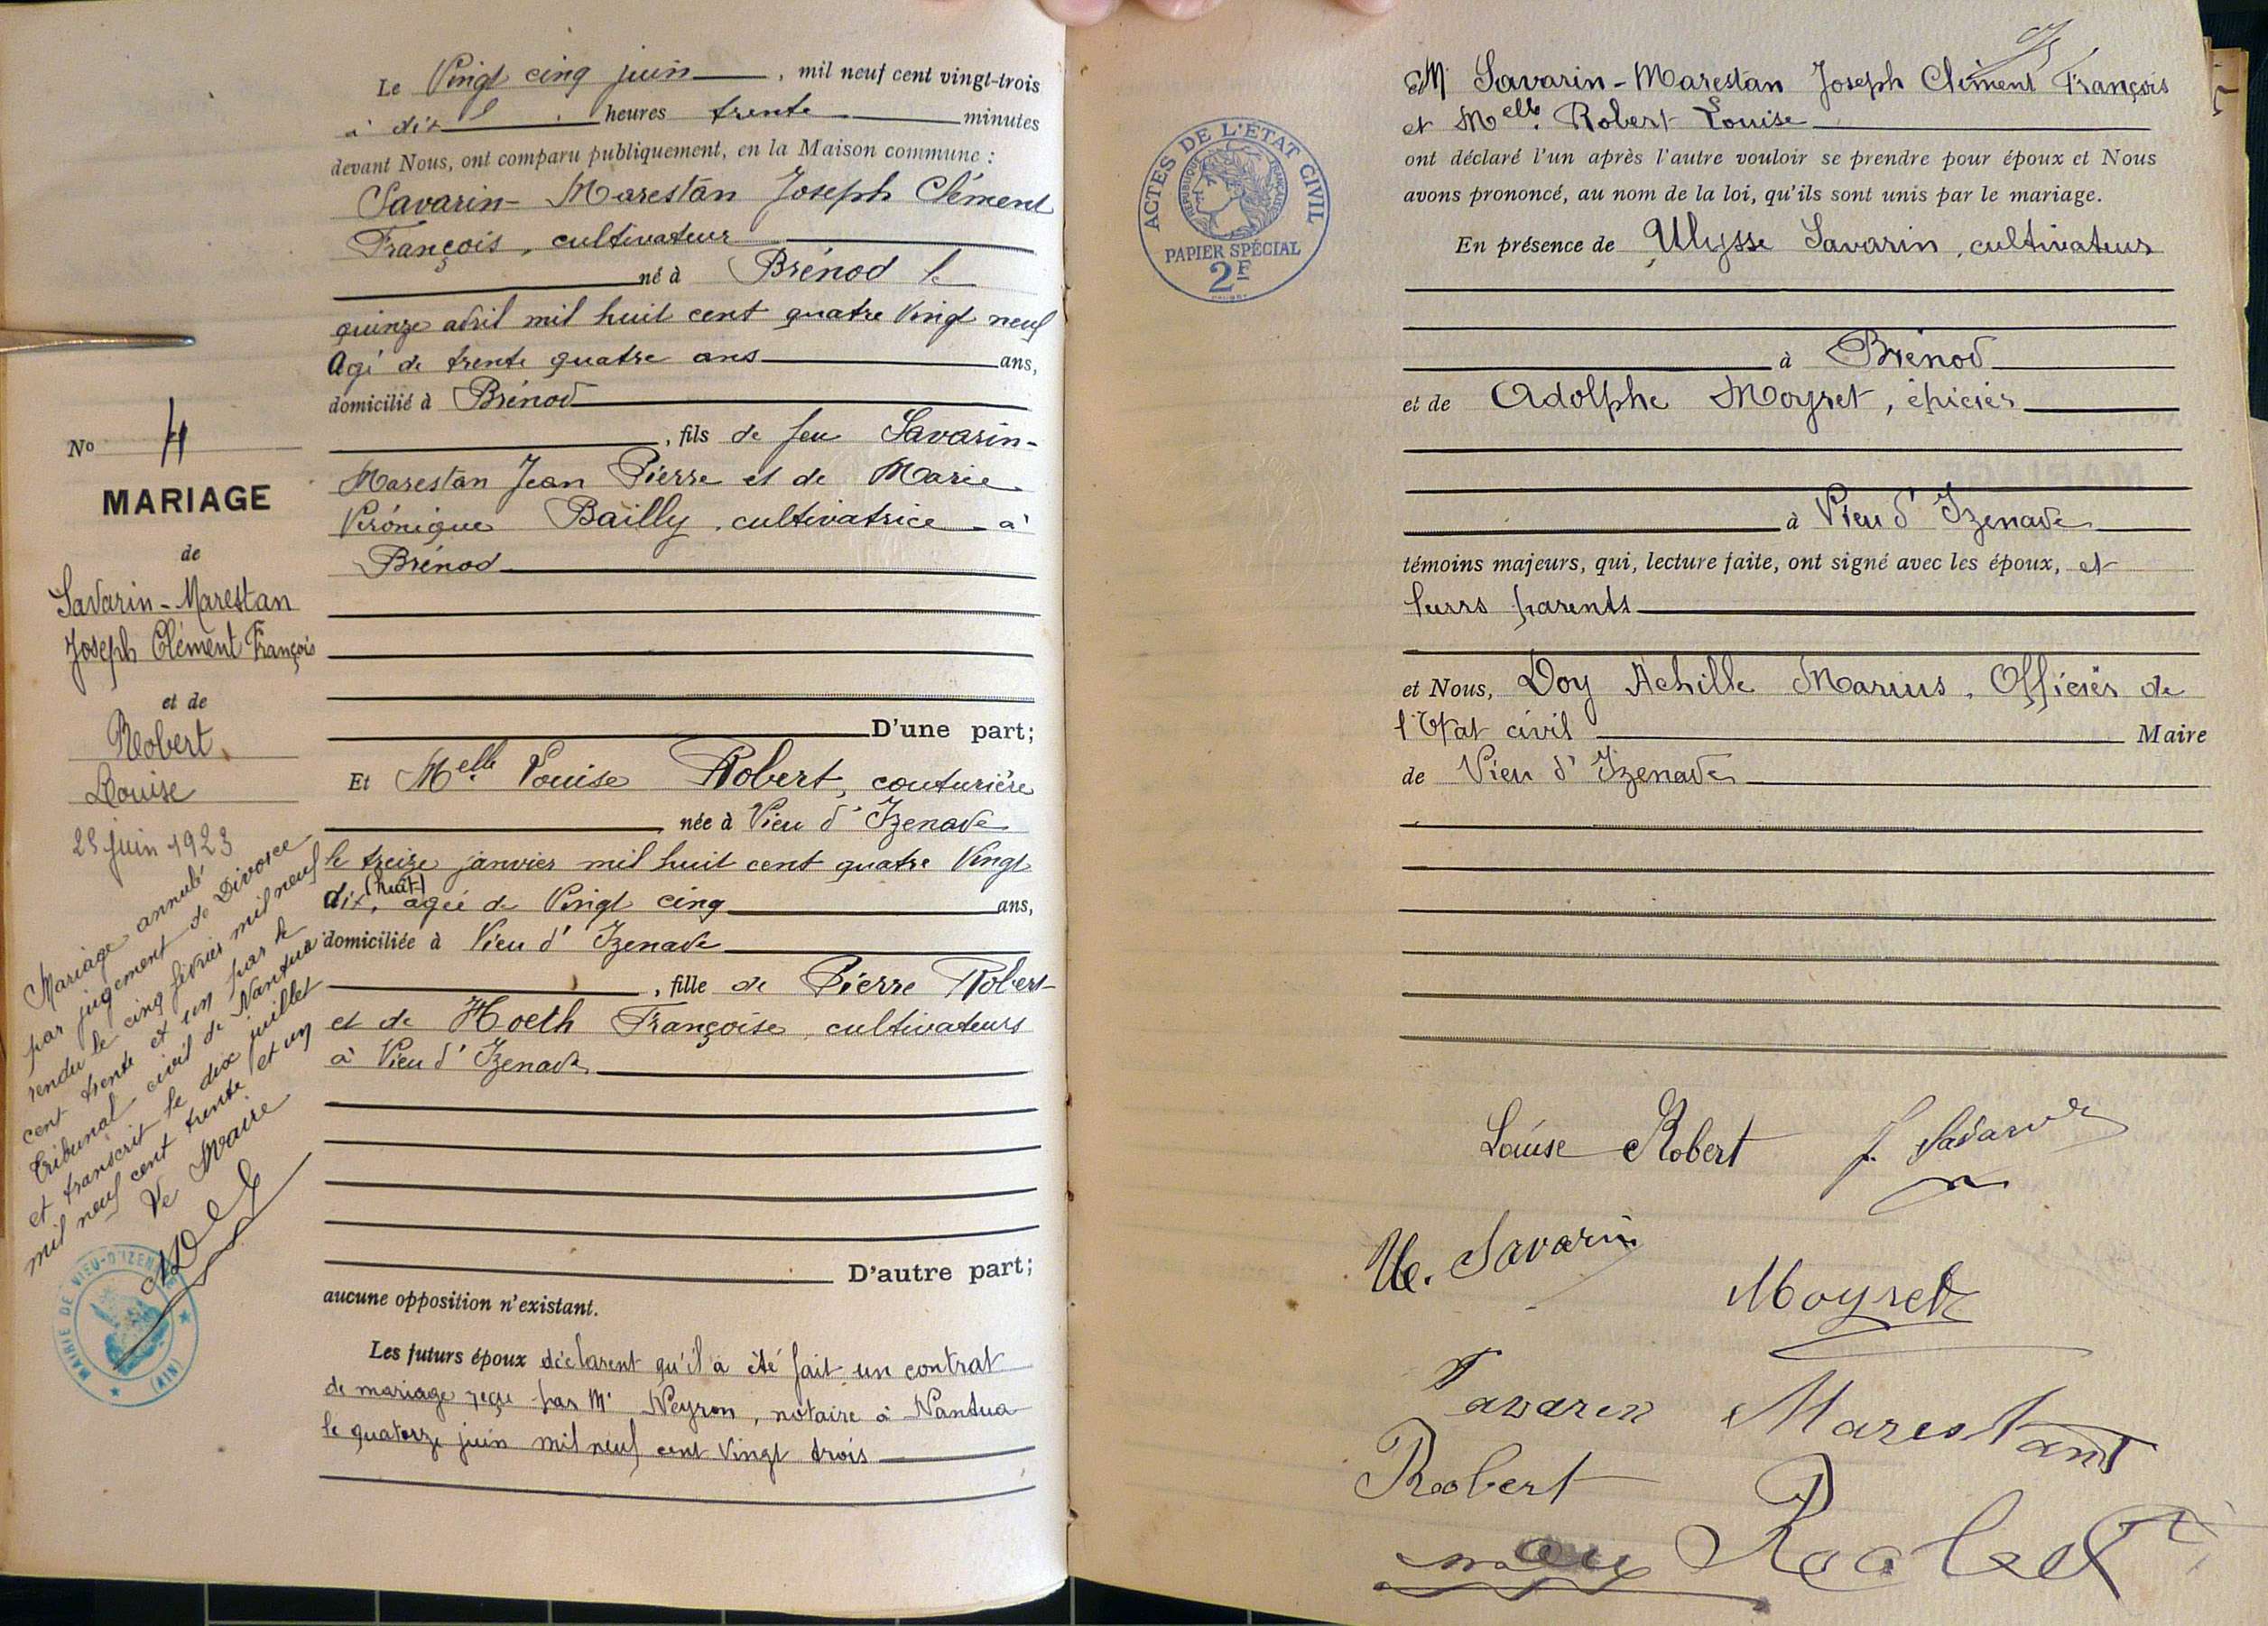 Le Vingt cinq juin, mil neuf cent vingt-trois
à dix heures trente minutes
devant Nous, ont comparu publiquement, en la Maison commune :
Savarin-Marestan Joseph Clément
François, cultivateur
né à Brénod le
quinze avril mil huit cent quatre Vingt neuf
Agé de trente quatre ans ans,
domicilié à Brénod
, fils de feu Savarin-
Marestan Jean Pierre et de Marie
Véronique Bailly, cultivatrice à
Brénod
D'une part;
Et Melle Louise Robert, couturière
née à Vieu d'Izenave
le treize janvier mil huit cent quatre Vingt
dix (huit), agée de Vingt cinq ans,
domiciliée à Vieu d'Izenave
, fille de Pierre Robert
et de Hoeth Françoise, cultivateurs
à Vieu d'Izenave
D'autre part;
aucune opposition n'existant.
Les futurs époux déclarent qu'il a été fait un contrat
de mariage reçu par Me Neyron, notaire à Nantua
le quatorze juin mil neuf cent Vingt trois
No 4
MARIAGE
de
Savarin-Marestan
Joseph Clément François
et de
Robert
Louise
25 juin 1923
Mariage annulé
par jugement de Divorce
rendu le cinq février mil neuf
cent trente et un par le
Tribunal civil de Nantua
et transcrit le dix juillet
mil neuf cent trente et un
Le Maire
MAIRIE DE VIEU-D'IZENAVE
(AIN)
ACTES DE L'ÉTAT CIVIL
RÉPUBLIQUE FRANÇAISE
PAPIER SPÉCIAL
2F
et M Savarin-Marestan Joseph Clément François
et Melle Robert Louise
ont déclaré l'un après l'autre vouloir se prendre pour époux et Nous
avons prononcé, au nom de la loi, qu'ils sont unis par le mariage.
En présence de Ulysse Savarin, cultivateur
à Brénod
et de Adolphe Moyret, épicier
à Vieu d'Izenave
témoins majeurs, qui, lecture faite, ont signé avec les époux, et
leurs parents
et Nous, Doy Achille Marius, Officier de
l'Etat civil Maire
de Vieu d'Izenave
Louise Robert J. Savarin
Ul. Savarin
Moyret
Savarin Marestant
Robert
Robert